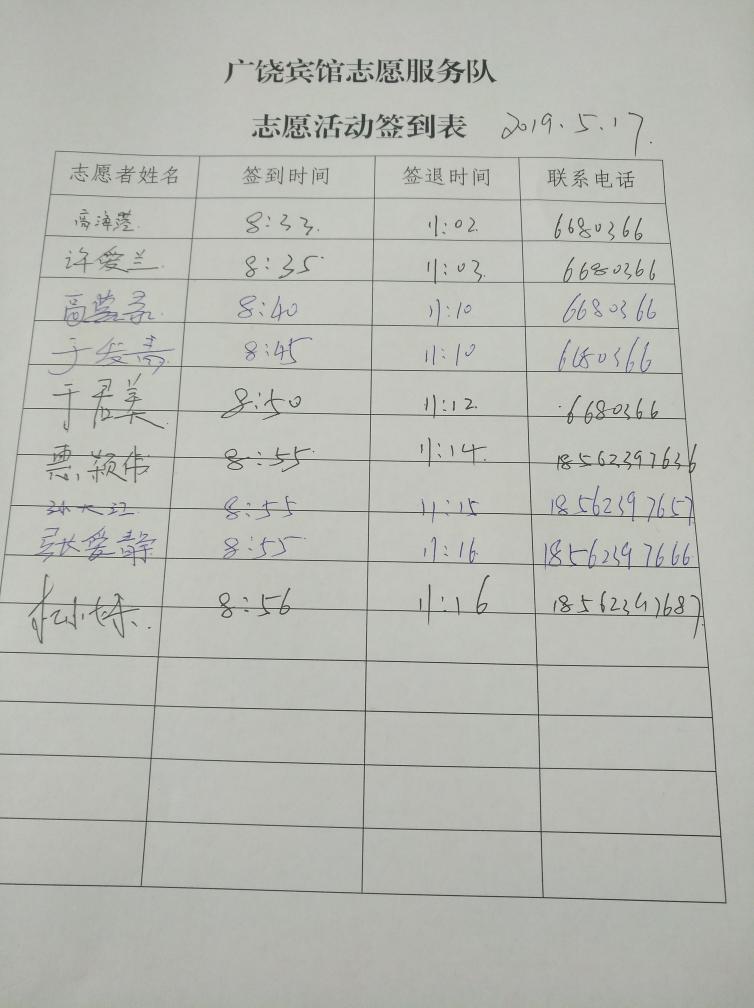 广饶宾馆志愿服务队
志愿活动签到表 2019.5.17.
志愿者姓名 签到时间 签退时间 联系电话
高海莲 8:33. 11:02. 6680366
许爱兰 8:35 11:03. 6680366
高 8:40 11:10 6680366
于爱青 8:45 11:10 6680366
于君美 8:50 11:12. 6680366
惠颖伟 8:55 11:14. 18562397636
孙大江 8:55 11:15 18562397657
张爱静 8:55 11:16 18562397666
8:56 11:16 18562397687